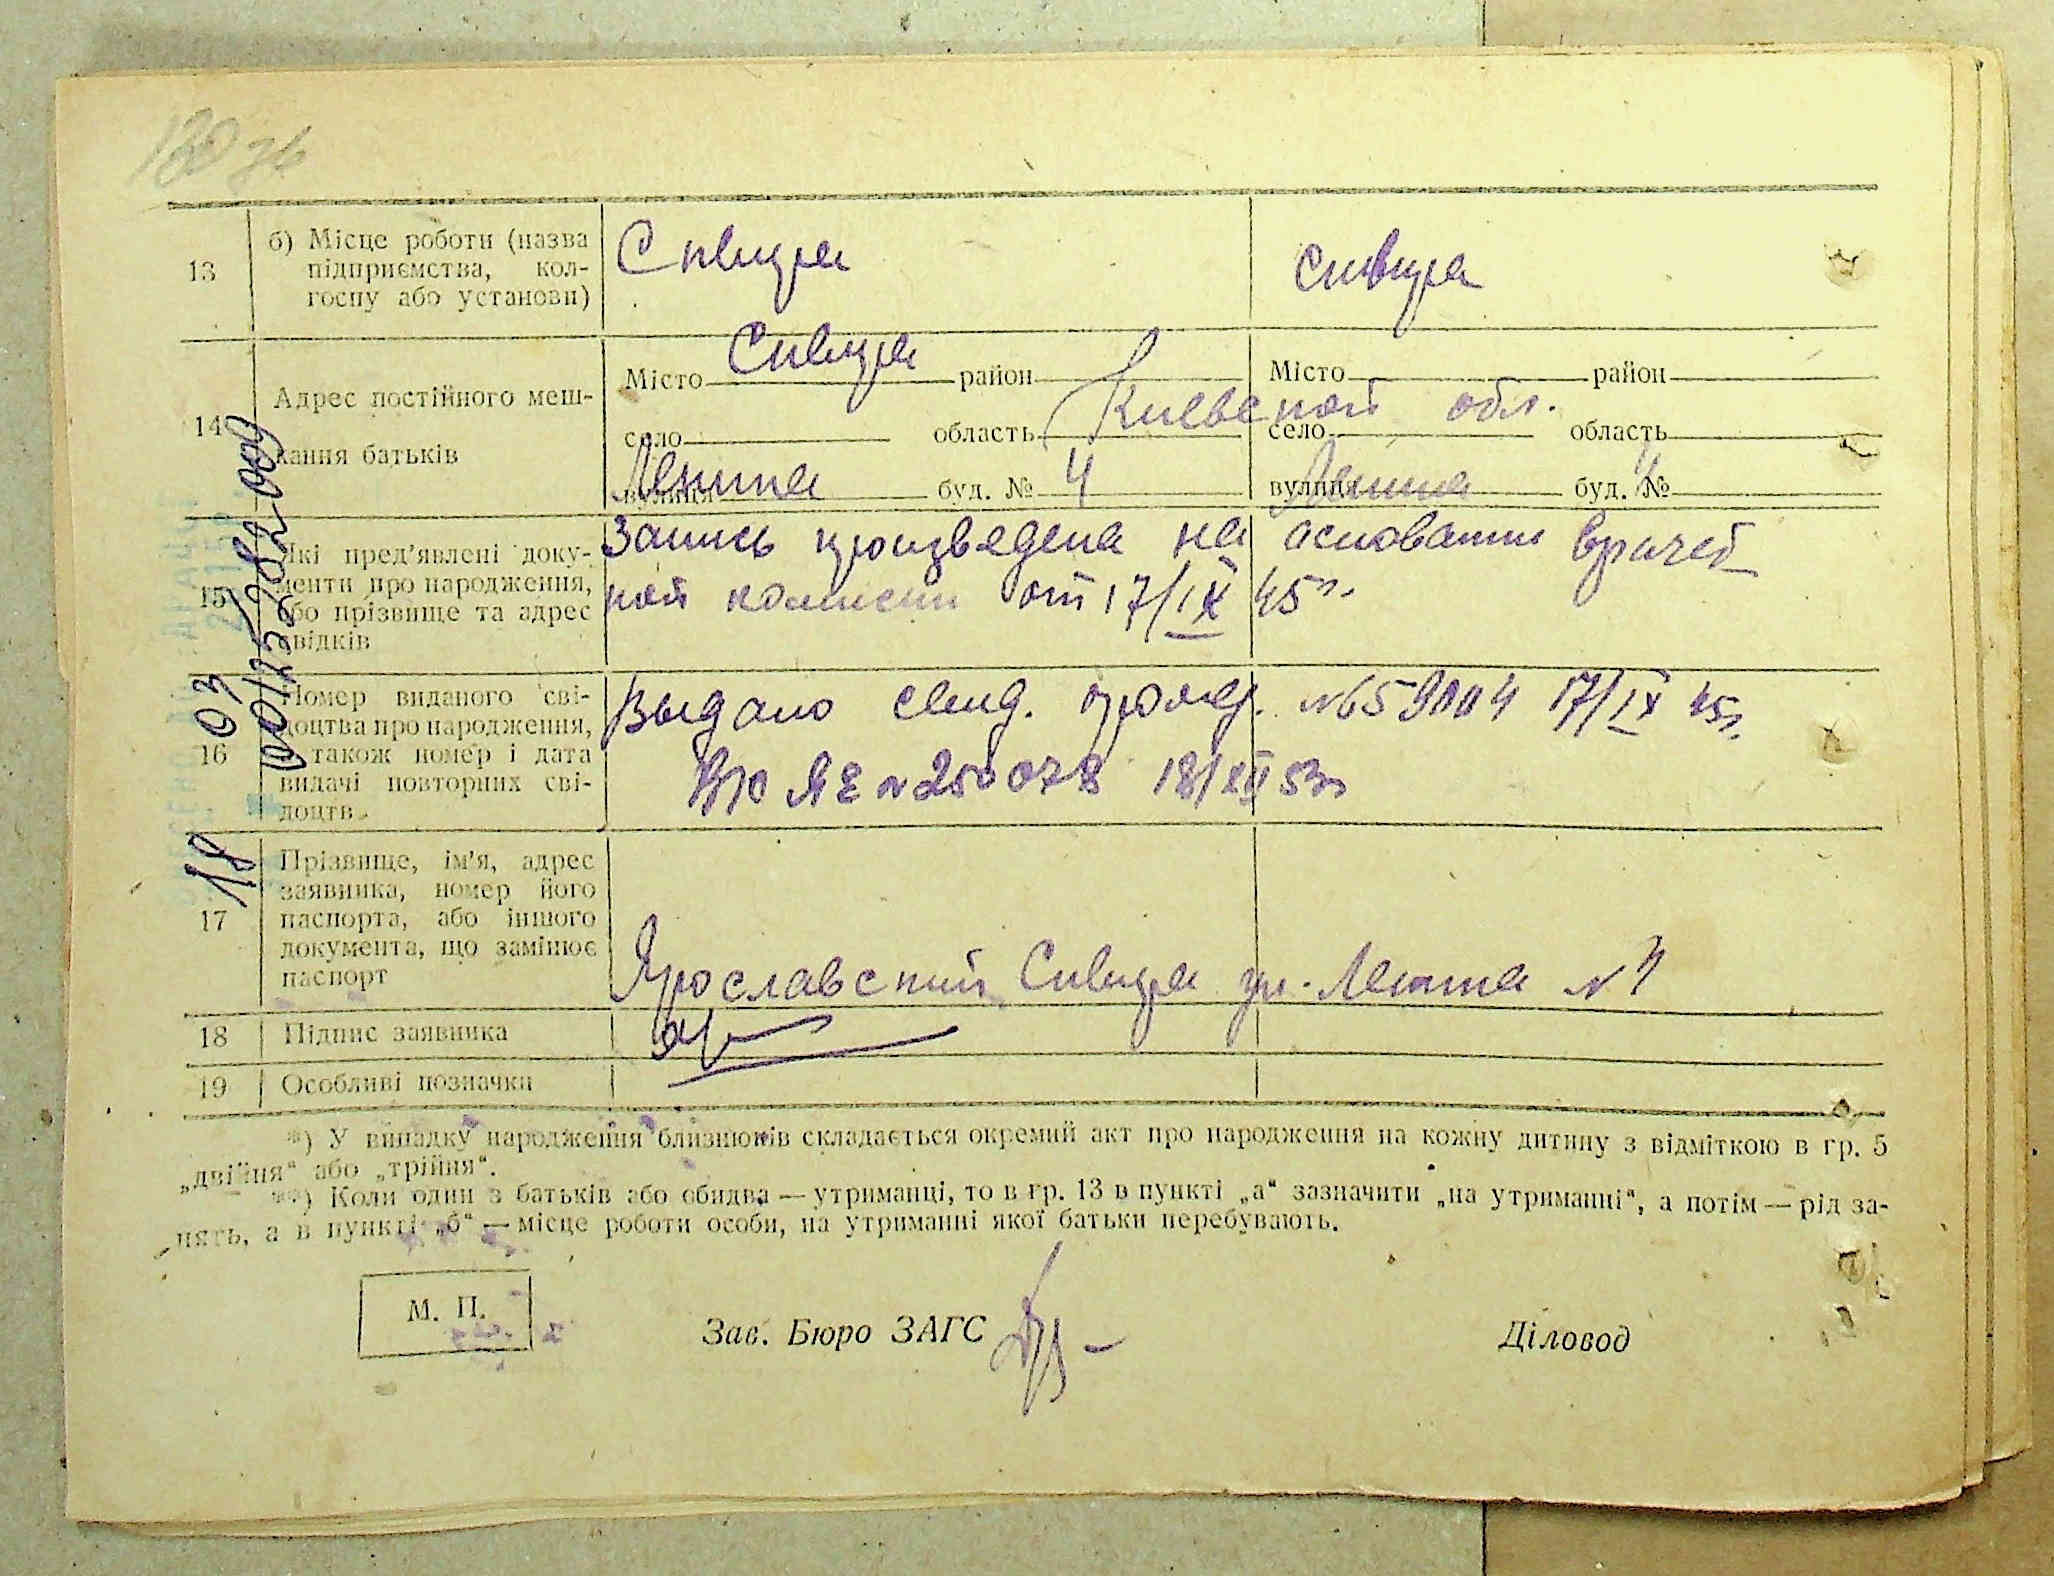 13
б) Місце роботи (назва
підприємства, кол-
госпу або установи)
Сквира
сквира
14
Адрес постійного меш-
кання батьків
Місто Сквира район
село область Киевской обл.
вулиця Ленина буд. № 4
Місто район
село область
вулиця Ленина буд. № 4
15
Які пред'явлені доку-
менти про народження,
або прізвище та адрес
свідків
Запись произведена на основании врачеб
ной комиссии от 17/IX 45 г.
16
Номер виданого сві-
доцтва про народження,
також номер і дата
видачі повторних сві-
доцтв.
Выдано свид. о рожд. 17/IX 45г.
ЯЕ № 250078 18/XII 53г
17
Прізвище, ім'я, адрес
заявника, номер його
паспорта, або іншого
документа, що замінює
паспорт
Ярославский Сквира ул. Ленина № 4
18
Підпис заявника
19
Особливі позначки
*) У випадку народження близнюків складається окремий акт про народження на кожну дитину з відміткою в гр. 5
„двійня“ або „трійня“.
**) Коли один з батьків або обидва — утриманці, то в гр. 13 в пункті „а“ зазначити „на утриманні“, а потім — рід за-
нять, а в пункті „б“ — місце роботи особи, на утриманні якої батьки перебувають.
М. П.
Зав. Бюро ЗАГС
Діловод